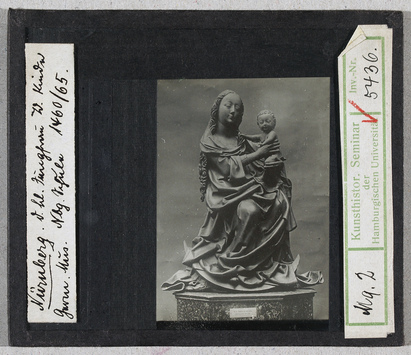 Nürnberg. d. hl. Jungfrau m. Kinde
Germ. Mus. Nbg. 1460/65.
Kunsthistor. Seminar
der
Hamburgischen Universität
Inv.-Nr.
5436.
Mg. 2